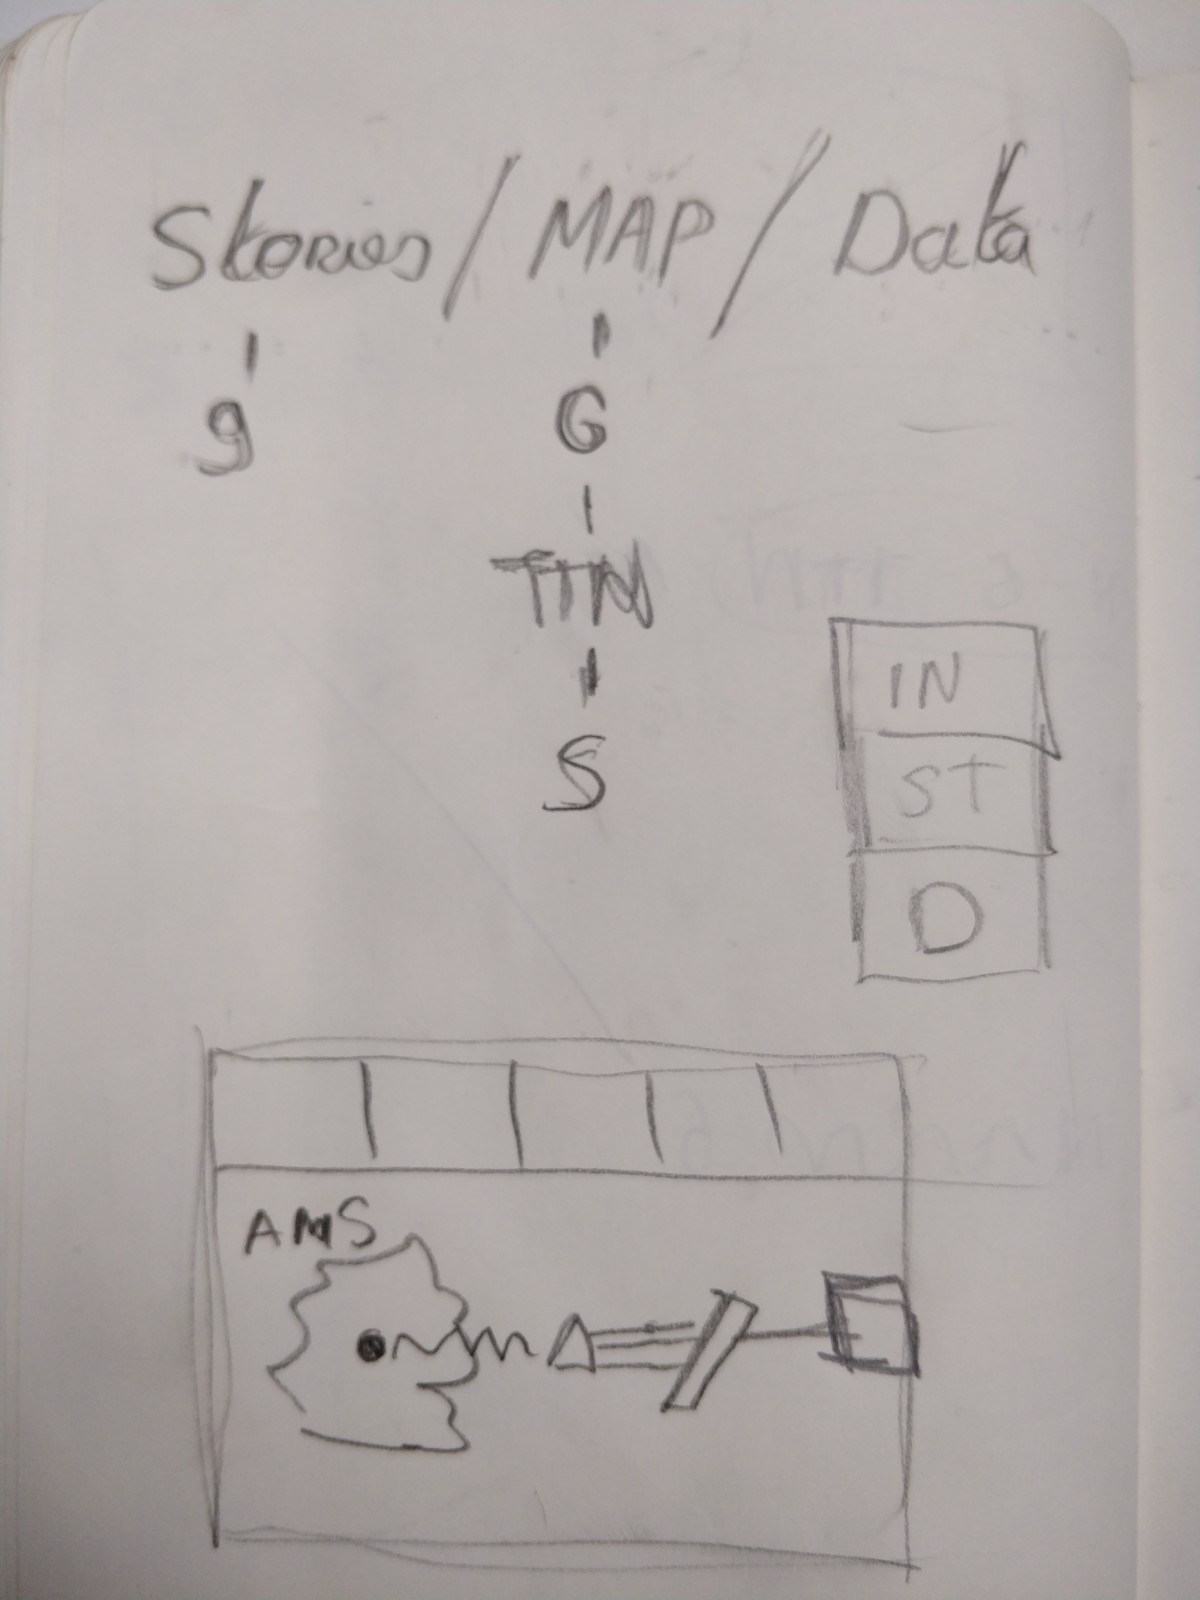 Stories / MAP / Data
9 G
TTN
S
IN
ST
D
AMS